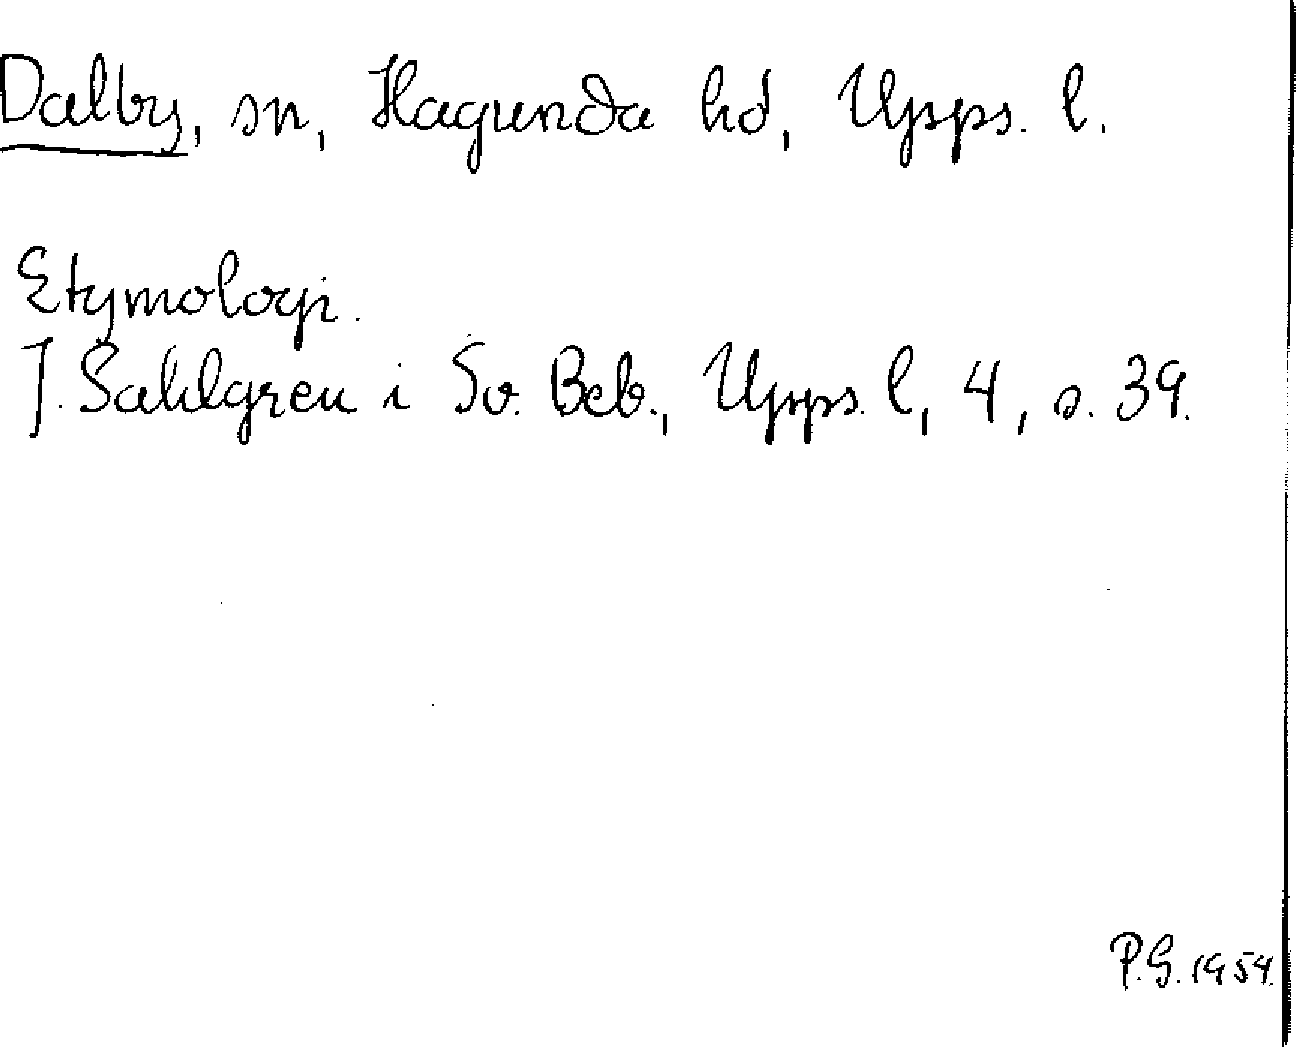 Dalby, sn, Hagunda hd, Upps. l.
Etymologi.
J. Sahlgren i Sv. Beb., Upps. l, 4, s. 39.
P.G. 1954.